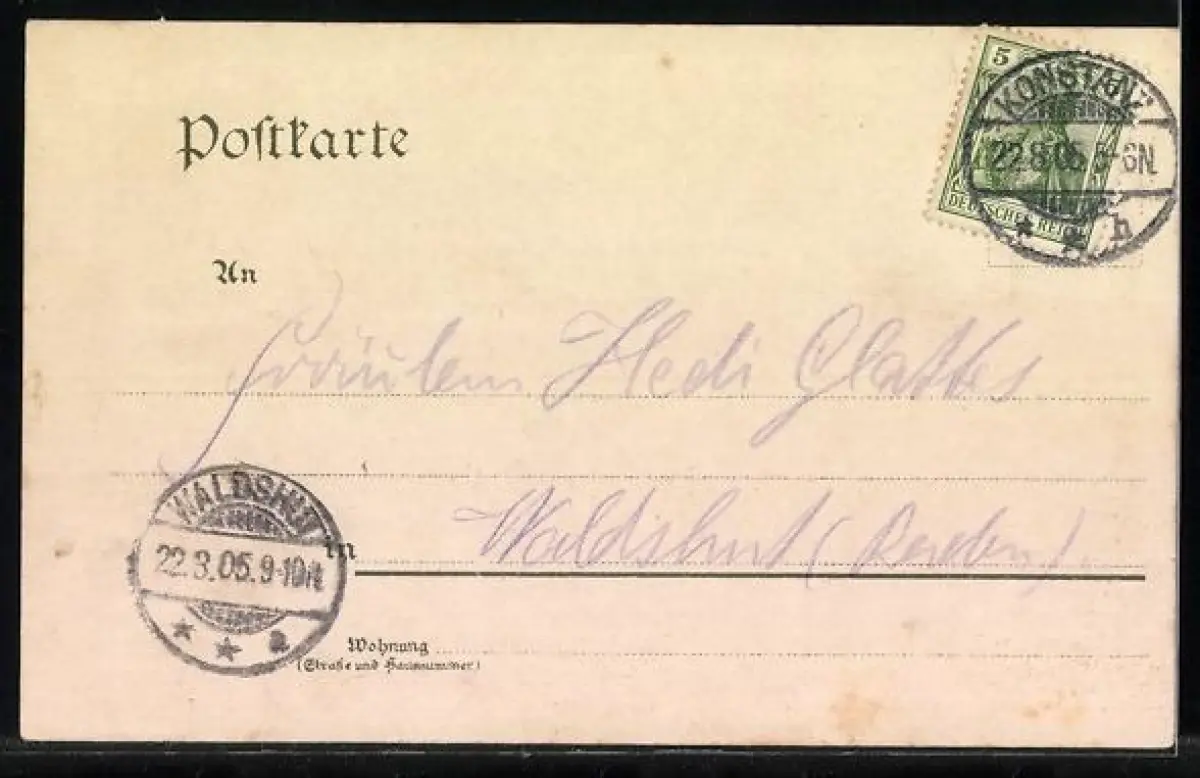 5
KONSTANZ
22.8.05.5-6N.
DEUTSCHES REICH
* * h
Postkarte
An
Fräulein Hedi Glattes
WALDSHUT
22.8.05.9-10N.
* * a
in
Waldshut (Baden).
Wohnung
(Straße und Hausnummer)